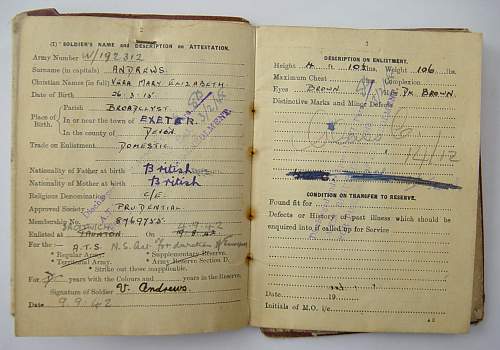 2
(1) SOLDIER'S NAME and DESCRIPTION on ATTESTATION.
Army Number W/192312
Surname (in capitals) ANDREWS
Christian Names (in full) VERA MARY ELIZABETH
Date of Birth 26.3.15
Place of Birth.
Parish BROADCLYST
In or near the town of EXETER
In the county of DEVON
Trade on Enlistment DOMESTIC
Nationality of Father at birth British
Nationality of Mother at birth British
Religious Denomination C/E
Approved Society PRUDENTIAL
Membership No.
Enlisted at On 9.9.42
For the :— A.T.S. N.S. Act for duration of Emergency
* Regular Army. * Supplementary Reserve.
* Territorial Army. * Army Reserve Section D.
* Strike out those inapplicable.
For years with the Colours and years in the Reserve.
Signature of Soldier V. Andrews.
Date 9.9.42
3
DESCRIPTION ON ENLISTMENT.
Height 4 ft. 10½ ins. Weight 106 lbs.
Maximum Chest
Eyes BROWN DK. BROWN.
Distinctive Marks and Minor Defects
CONDITION ON TRANSFER TO RESERVE.
Found fit for
Defects or History of past illness which should be
enquired into if called up for Service
Date 19
Initials of M.O. i/c